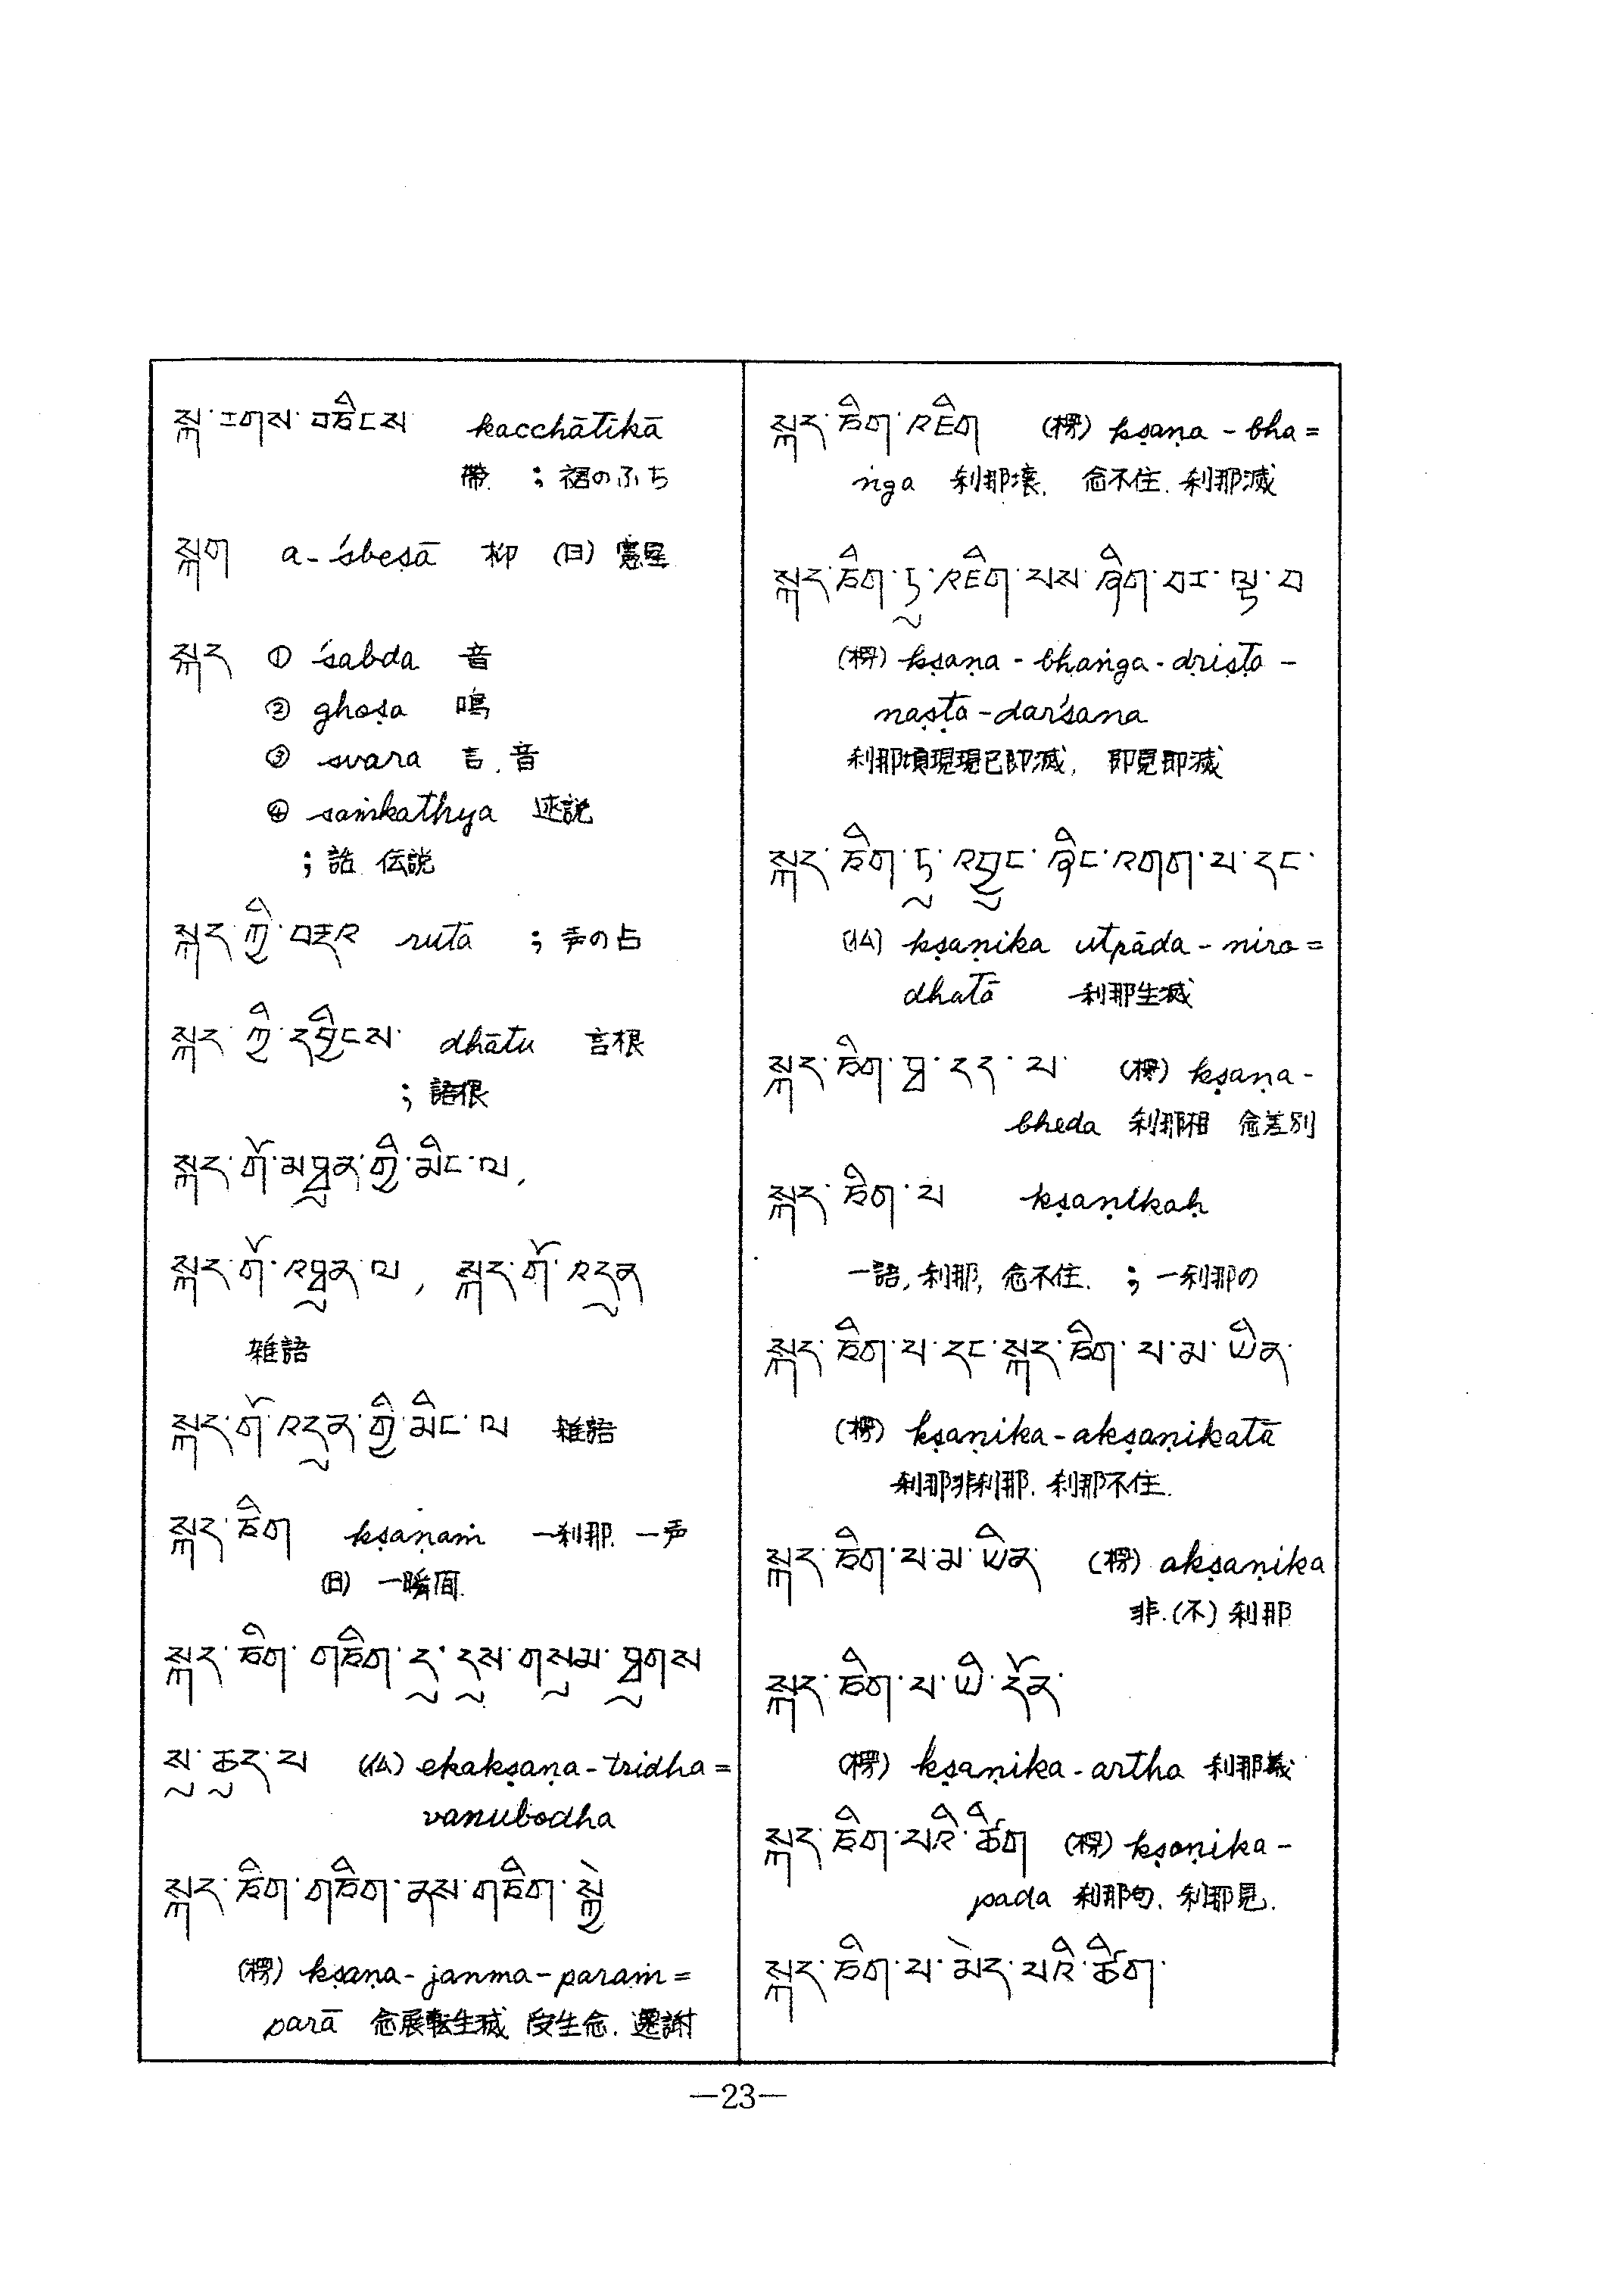 སྐ་རགས་བཅིངས kacchāṭikā
帶 ; 裙のふち
སྐག a-śbeṣā 柳 (日) 憲星
སྐད ① śabda 音
② ghoṣa 鳴
③ svara 言. 音
④ saṁkathya 述説
; 話 伝説
སྐད་ཀྱི་བརྡའ rutā ; 声の占
སྐད་ཀྱི་དབྱིངས་ dhātu 言根
; 語根
སྐད་གོ་མཐུན་གྱི་མིང་ལ,
སྐད་གོ་འཐུན་ལ, སྐད་གོ་འདུན
雑語
སྐད་གོ་འདུན་གྱི་མིང་ལ 雑語
སྐད་ཅིག kṣaṇaṁ 一刹那. 一声
(日) 一瞬間.
སྐད་ཅིག་གཅིག་དུ་དུས་གསུམ་ཐུགས
སུ་ཆུད་པ (仏) ekakṣaṇa-tridha=
vanubodha
སྐད་ཅིག་གཅིག་ནས་གཅིག་སྐྱེ
(楞) kṣaṇa-janma-paraṁ=
parā 念展転生滅 受生念. 遷謝
སྐད་ཅིག་འཇིག (楞) kṣaṇa-bha=
ṅga 刹那壊. 念不住. 刹那滅
སྐད་ཅིག་ཏུ་འཇིག་པས་ཞིག་བར་ལྟ་བ
(楞) kṣaṇa-bhaṅga-dṛiṣṭa-
naṣṭa-darśana
刹那頃現現已即滅, 即見即滅
སྐད་ཅིག་ཏུ་འབྱུང་ཞིང་འགག་པ་དང་
(仏) kṣaṇika utpāda-niro=
dhatā 刹那生滅
སྐད་ཅིག་ཐ་དད་པ་ (楞) kṣaṇa-
bheda 刹那相 念差別
སྐད་ཅིག་པ kṣaṇikaḥ
一語, 刹那, 念不住. ; 一刹那の
སྐད་ཅིག་པ་དང་སྐད་ཅིག་པ་མ་ཡིན་
(楞) kṣaṇika-akṣaṇikatā
刹那非刹那. 刹那不住.
སྐད་ཅིག་པ་མ་ཡིན་ (楞) akṣaṇika
非.(不) 刹那
སྐད་ཅིག་པ་ཡི་དོན་
(楞) kṣaṇika-artha 刹那義
སྐད་ཅིག་པའི་ཚིག (楞) kṣaṇika-
pada 刹那句. 刹那見.
སྐད་ཅིག་པ་མེད་པའི་ཚིག་
—23—